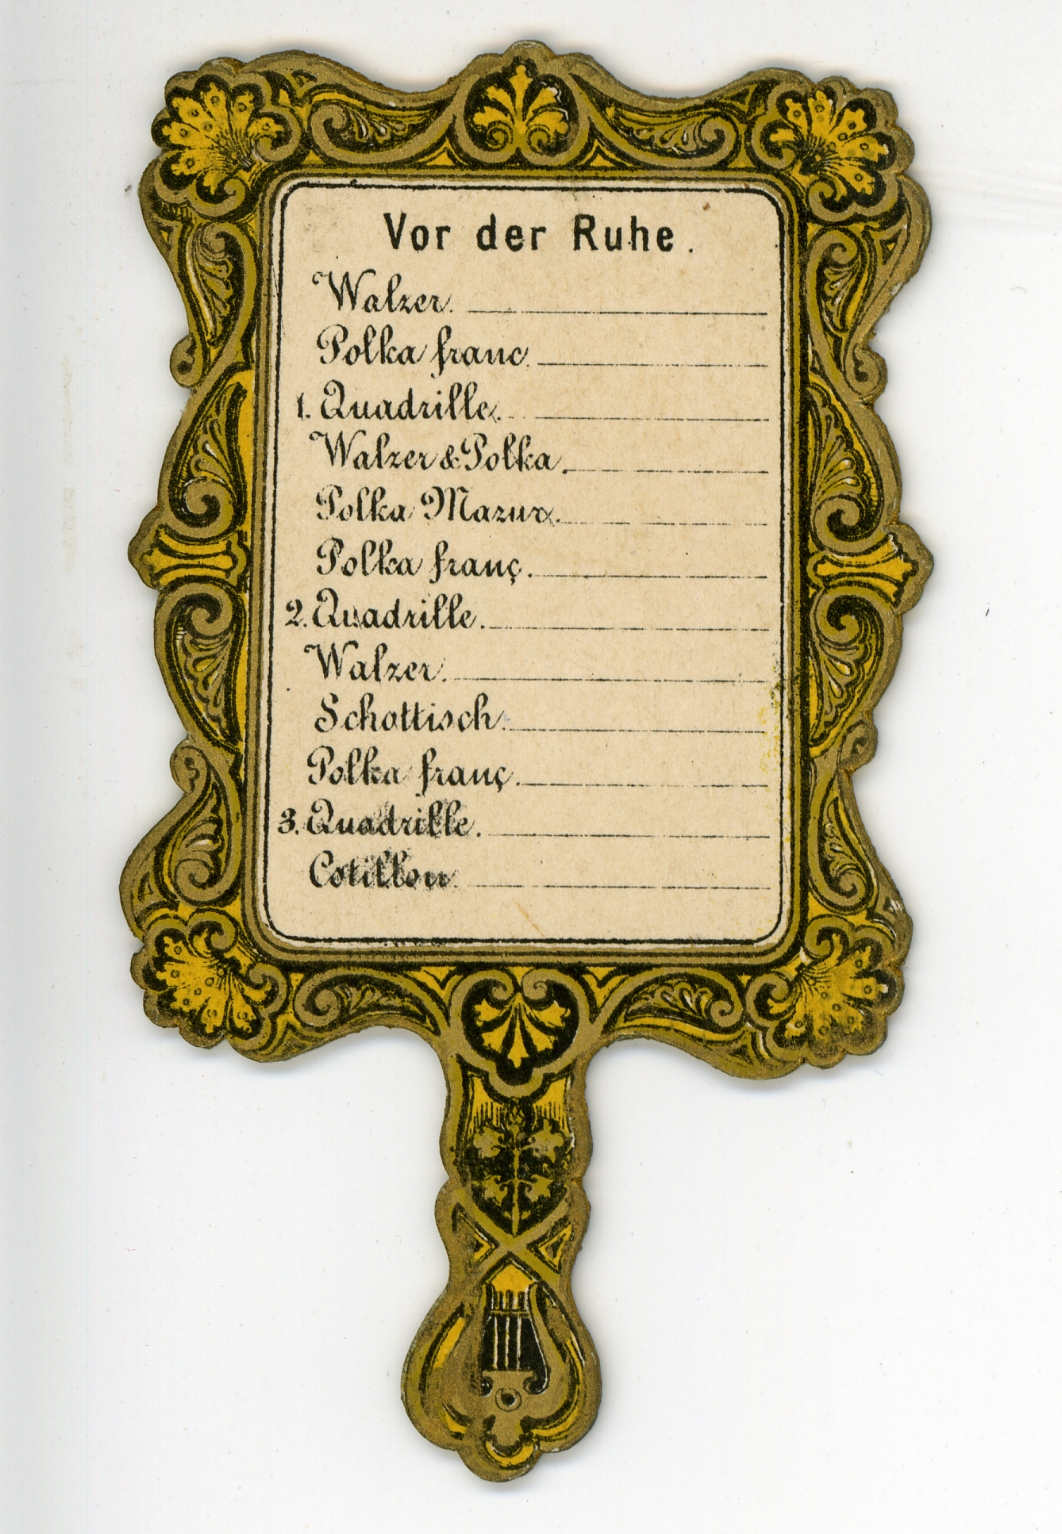 Vor der Ruhe.
Walzer.
Polka franc.
1. Quadrille.
Walzer & Polka.
Polka Mazur.
Polka franç.
2. Quadrille.
Walzer.
Schottisch.
Polka franç.
3. Quadrille.
Cotillon.